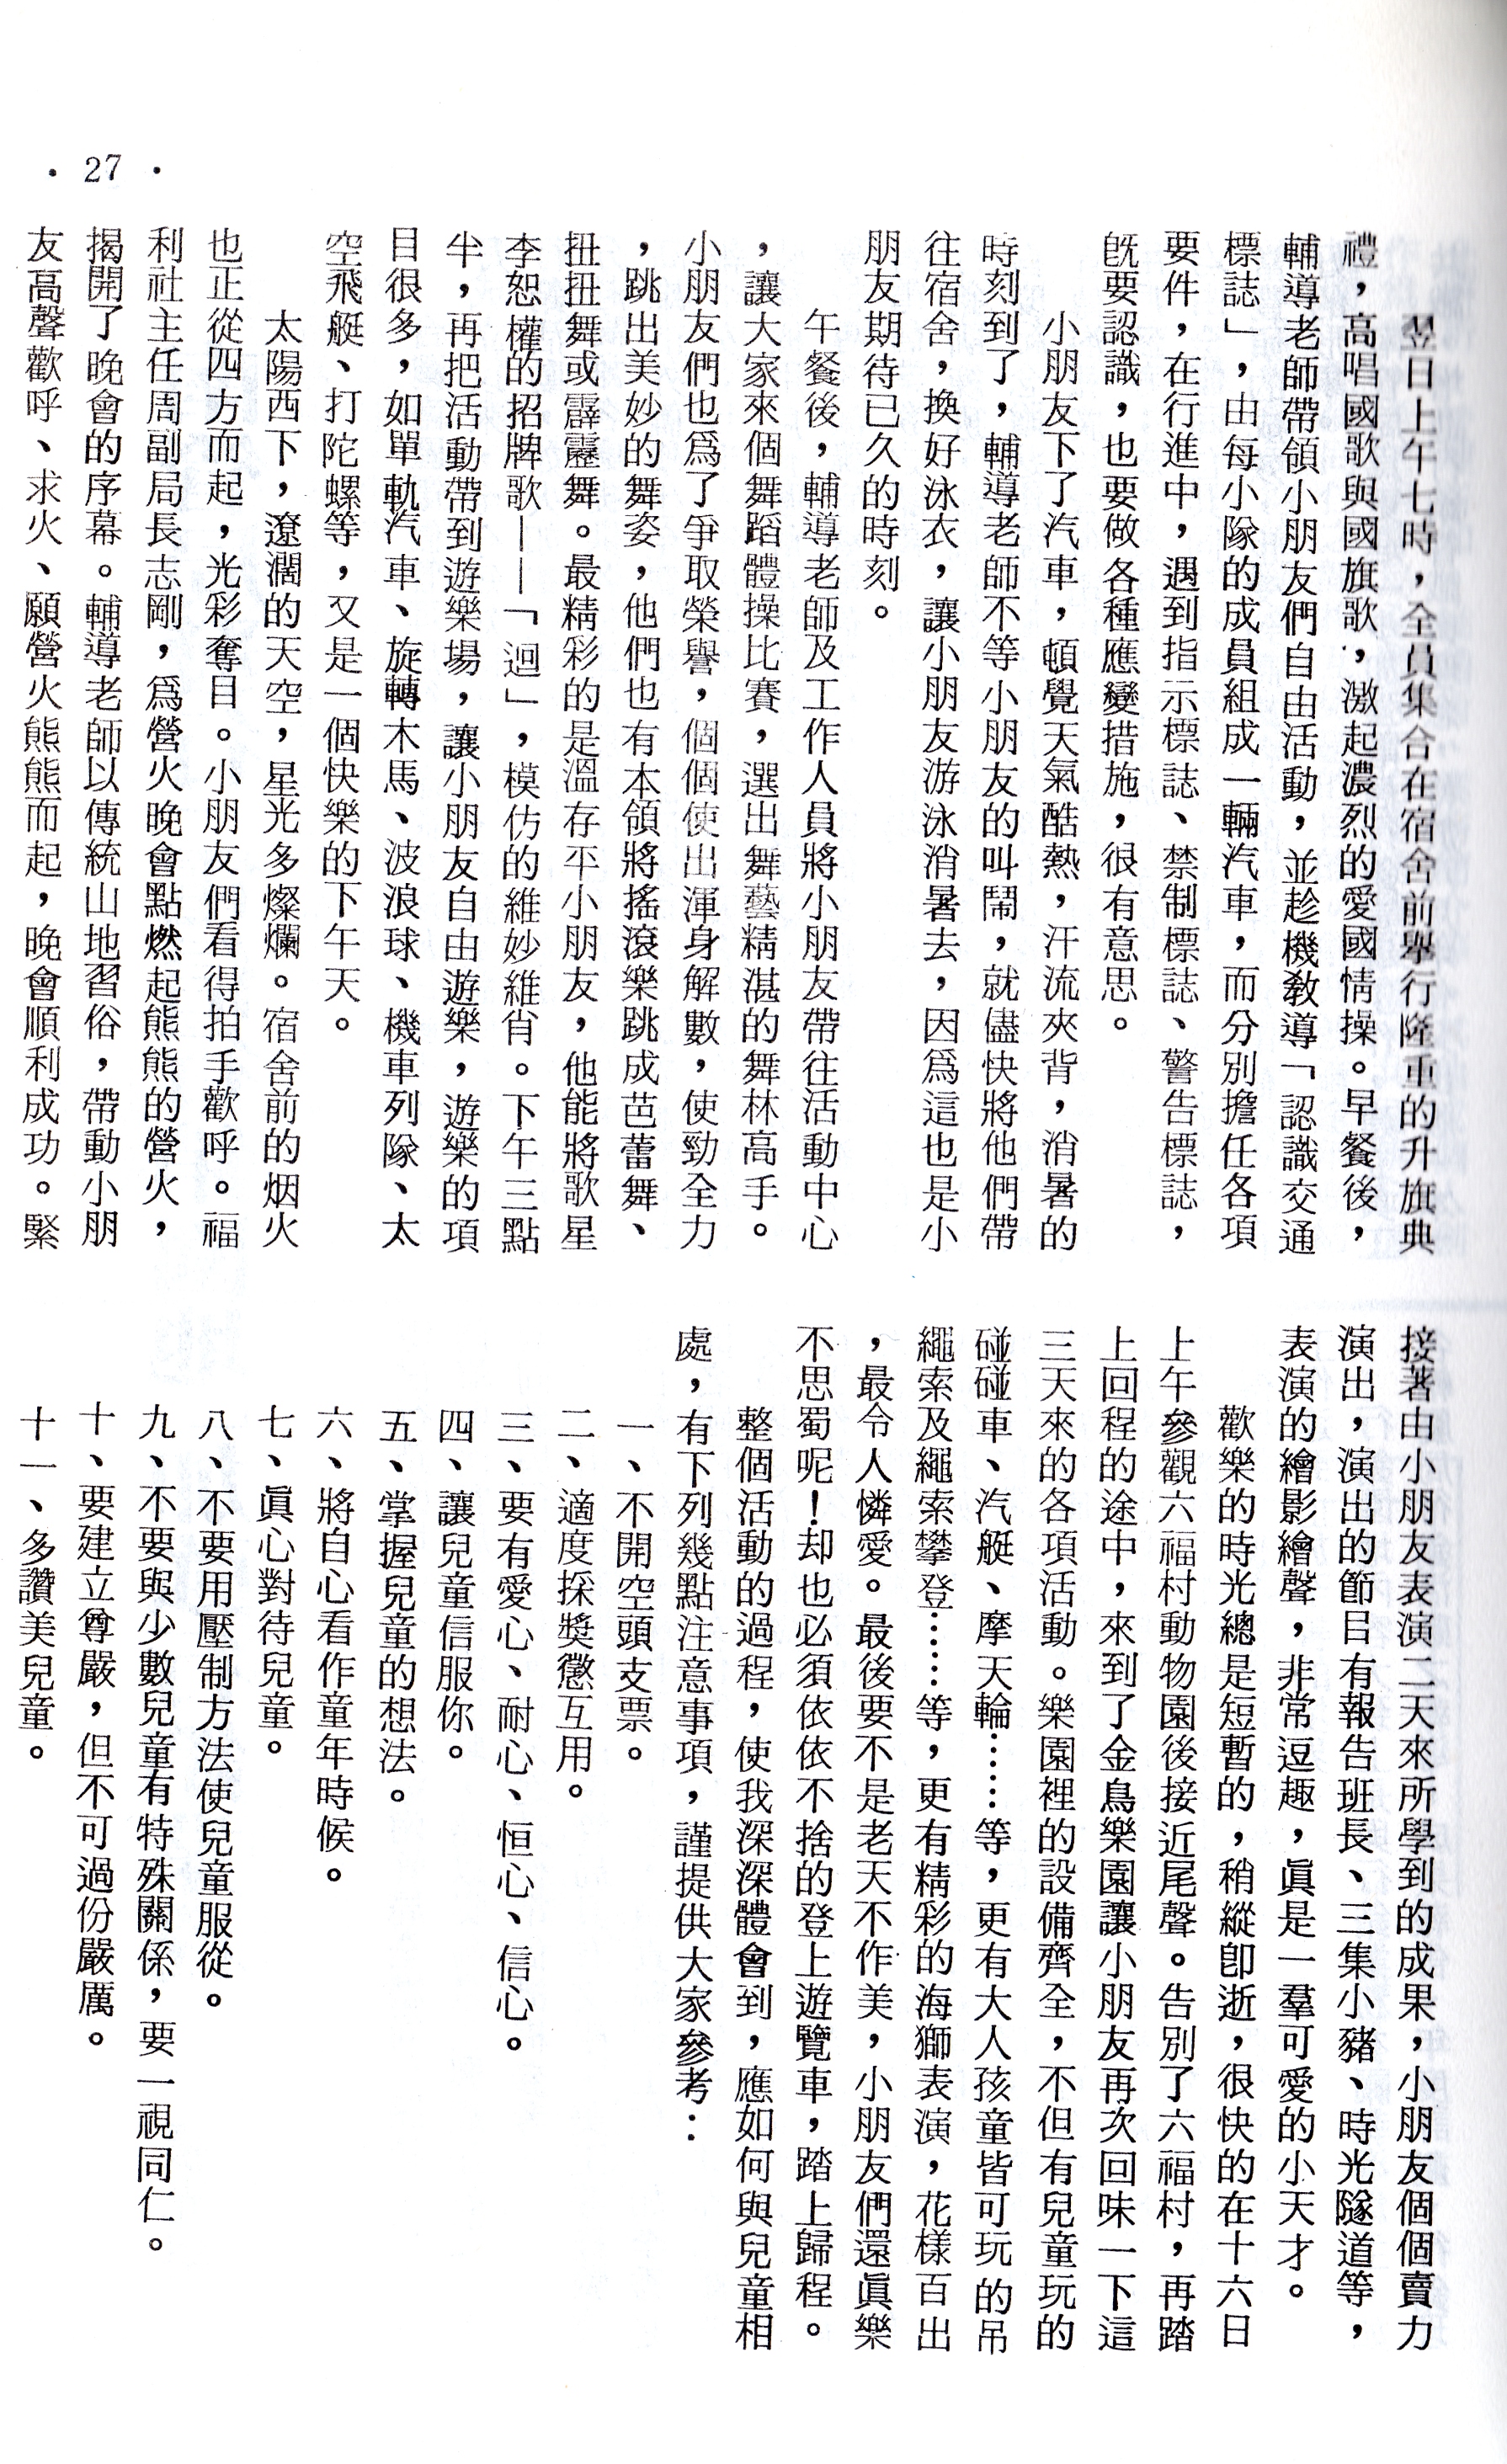 翌日上午七時，全員集合在宿舍前舉行隆重的升旗典
禮，高唱國歌與國旗歌，激起濃烈的愛國情操。早餐後，
輔導老師帶領小朋友們自由活動，並趁機教導「認識交通
標誌」，由每小隊的成員組成一輛汽車，而分別擔任各項
要件，在行進中，遇到指示標誌、禁制標誌、警告標誌，
旣要認識，也要做各種應變措施，很有意思。
小朋友下了汽車，頓覺天氣酷熱，汗流夾背，消暑的
時刻到了，輔導老師不等小朋友的叫鬧，就儘快將他們帶
往宿舍，換好泳衣，讓小朋友游泳消暑去，因爲這也是小
朋友期待已久的時刻。
午餐後，輔導老師及工作人員將小朋友帶往活動中心
，讓大家來個舞蹈體操比賽，選出舞藝精湛的舞林高手。
小朋友們也爲了爭取榮譽，個個使出渾身解數，使勁全力
，跳出美妙的舞姿，他們也有本領將搖滾樂跳成芭蕾舞、
扭扭舞或霹靂舞。最精彩的是溫存平小朋友，他能將歌星
李恕權的招牌歌——「迴」，模仿的維妙維肖。下午三點
半，再把活動帶到遊樂場，讓小朋友自由遊樂，遊樂的項
目很多，如單軌汽車、旋轉木馬、波浪球、機車列隊、太
空飛艇、打陀螺等，又是一個快樂的下午天。
太陽西下，遼濶的天空，星光多燦爛。宿舍前的烟火
也正從四方而起，光彩奪目。小朋友們看得拍手歡呼。福
利社主任周副局長志剛，爲營火晚會點燃起熊熊的營火，
揭開了晚會的序幕。輔導老師以傳統山地習俗，帶動小朋
友高聲歡呼、求火、願營火熊熊而起，晚會順利成功。緊
接著由小朋友表演二天來所學到的成果，小朋友個個賣力
演出，演出的節目有報告班長、三集小豬、時光隧道等，
表演的繪影繪聲，非常逗趣，眞是一羣可愛的小天才。
歡樂的時光總是短暫的，稍縱卽逝，很快的在十六日
上午參觀六福村動物園後接近尾聲。告別了六福村，再踏
上回程的途中，來到了金鳥樂園讓小朋友再次回味一下這
三天來的各項活動。樂園裡的設備齊全，不但有兒童玩的
碰碰車、汽艇、摩天輪……等，更有大人孩童皆可玩的吊
繩索及繩索攀登……等，更有精彩的海獅表演，花樣百出
，最令人憐愛。最後要不是老天不作美，小朋友們還眞樂
不思蜀呢！却也必須依依不捨的登上遊覽車，踏上歸程。
整個活動的過程，使我深深體會到，應如何與兒童相
處，有下列幾點注意事項，謹提供大家參考：
一、不開空頭支票。
二、適度採獎懲互用。
三、要有愛心、耐心、恒心、信心。
四、讓兒童信服你。
五、掌握兒童的想法。
六、將自心看作童年時候。
七、眞心對待兒童。
八、不要用壓制方法使兒童服從。
九、不要與少數兒童有特殊關係，要一視同仁。
十、要建立尊嚴，但不可過份嚴厲。
十一、多讚美兒童。
· 27 ·